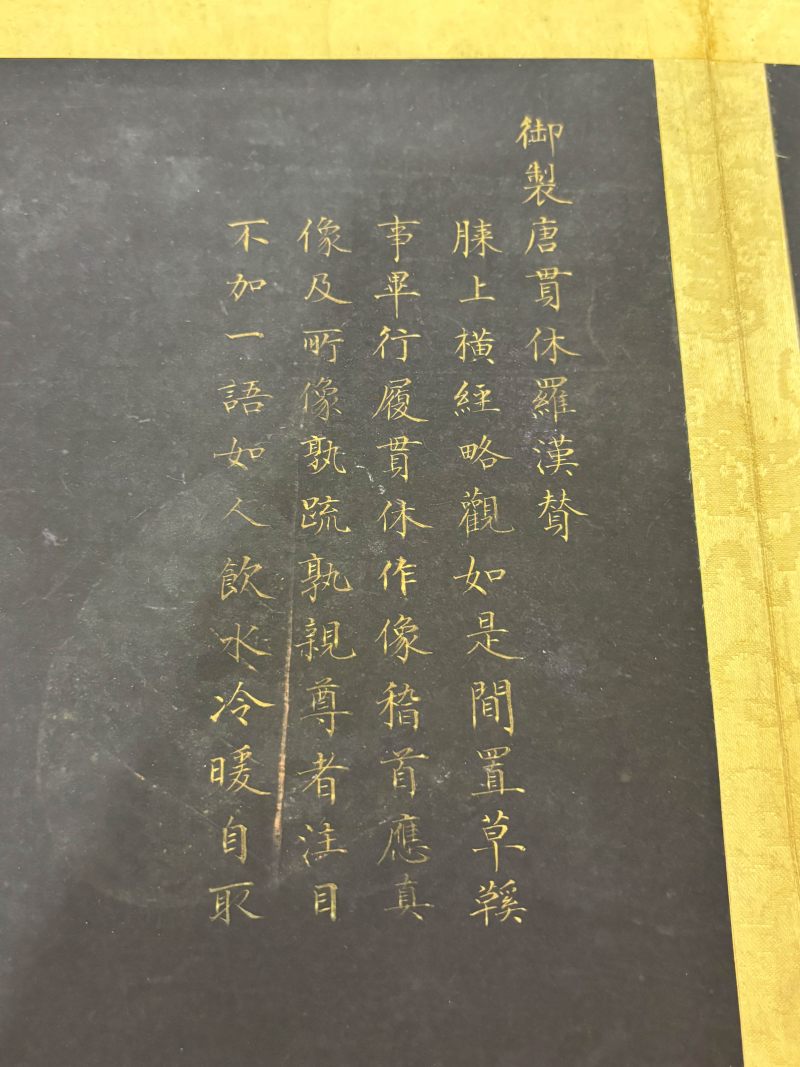 御製唐貫休羅漢贊
膝上橫經略觀如是間置草鞵
事畢行履貫休作像稽首應真
像及所像孰疏孰親尊者注目
不加一語如人飲水冷暖自取